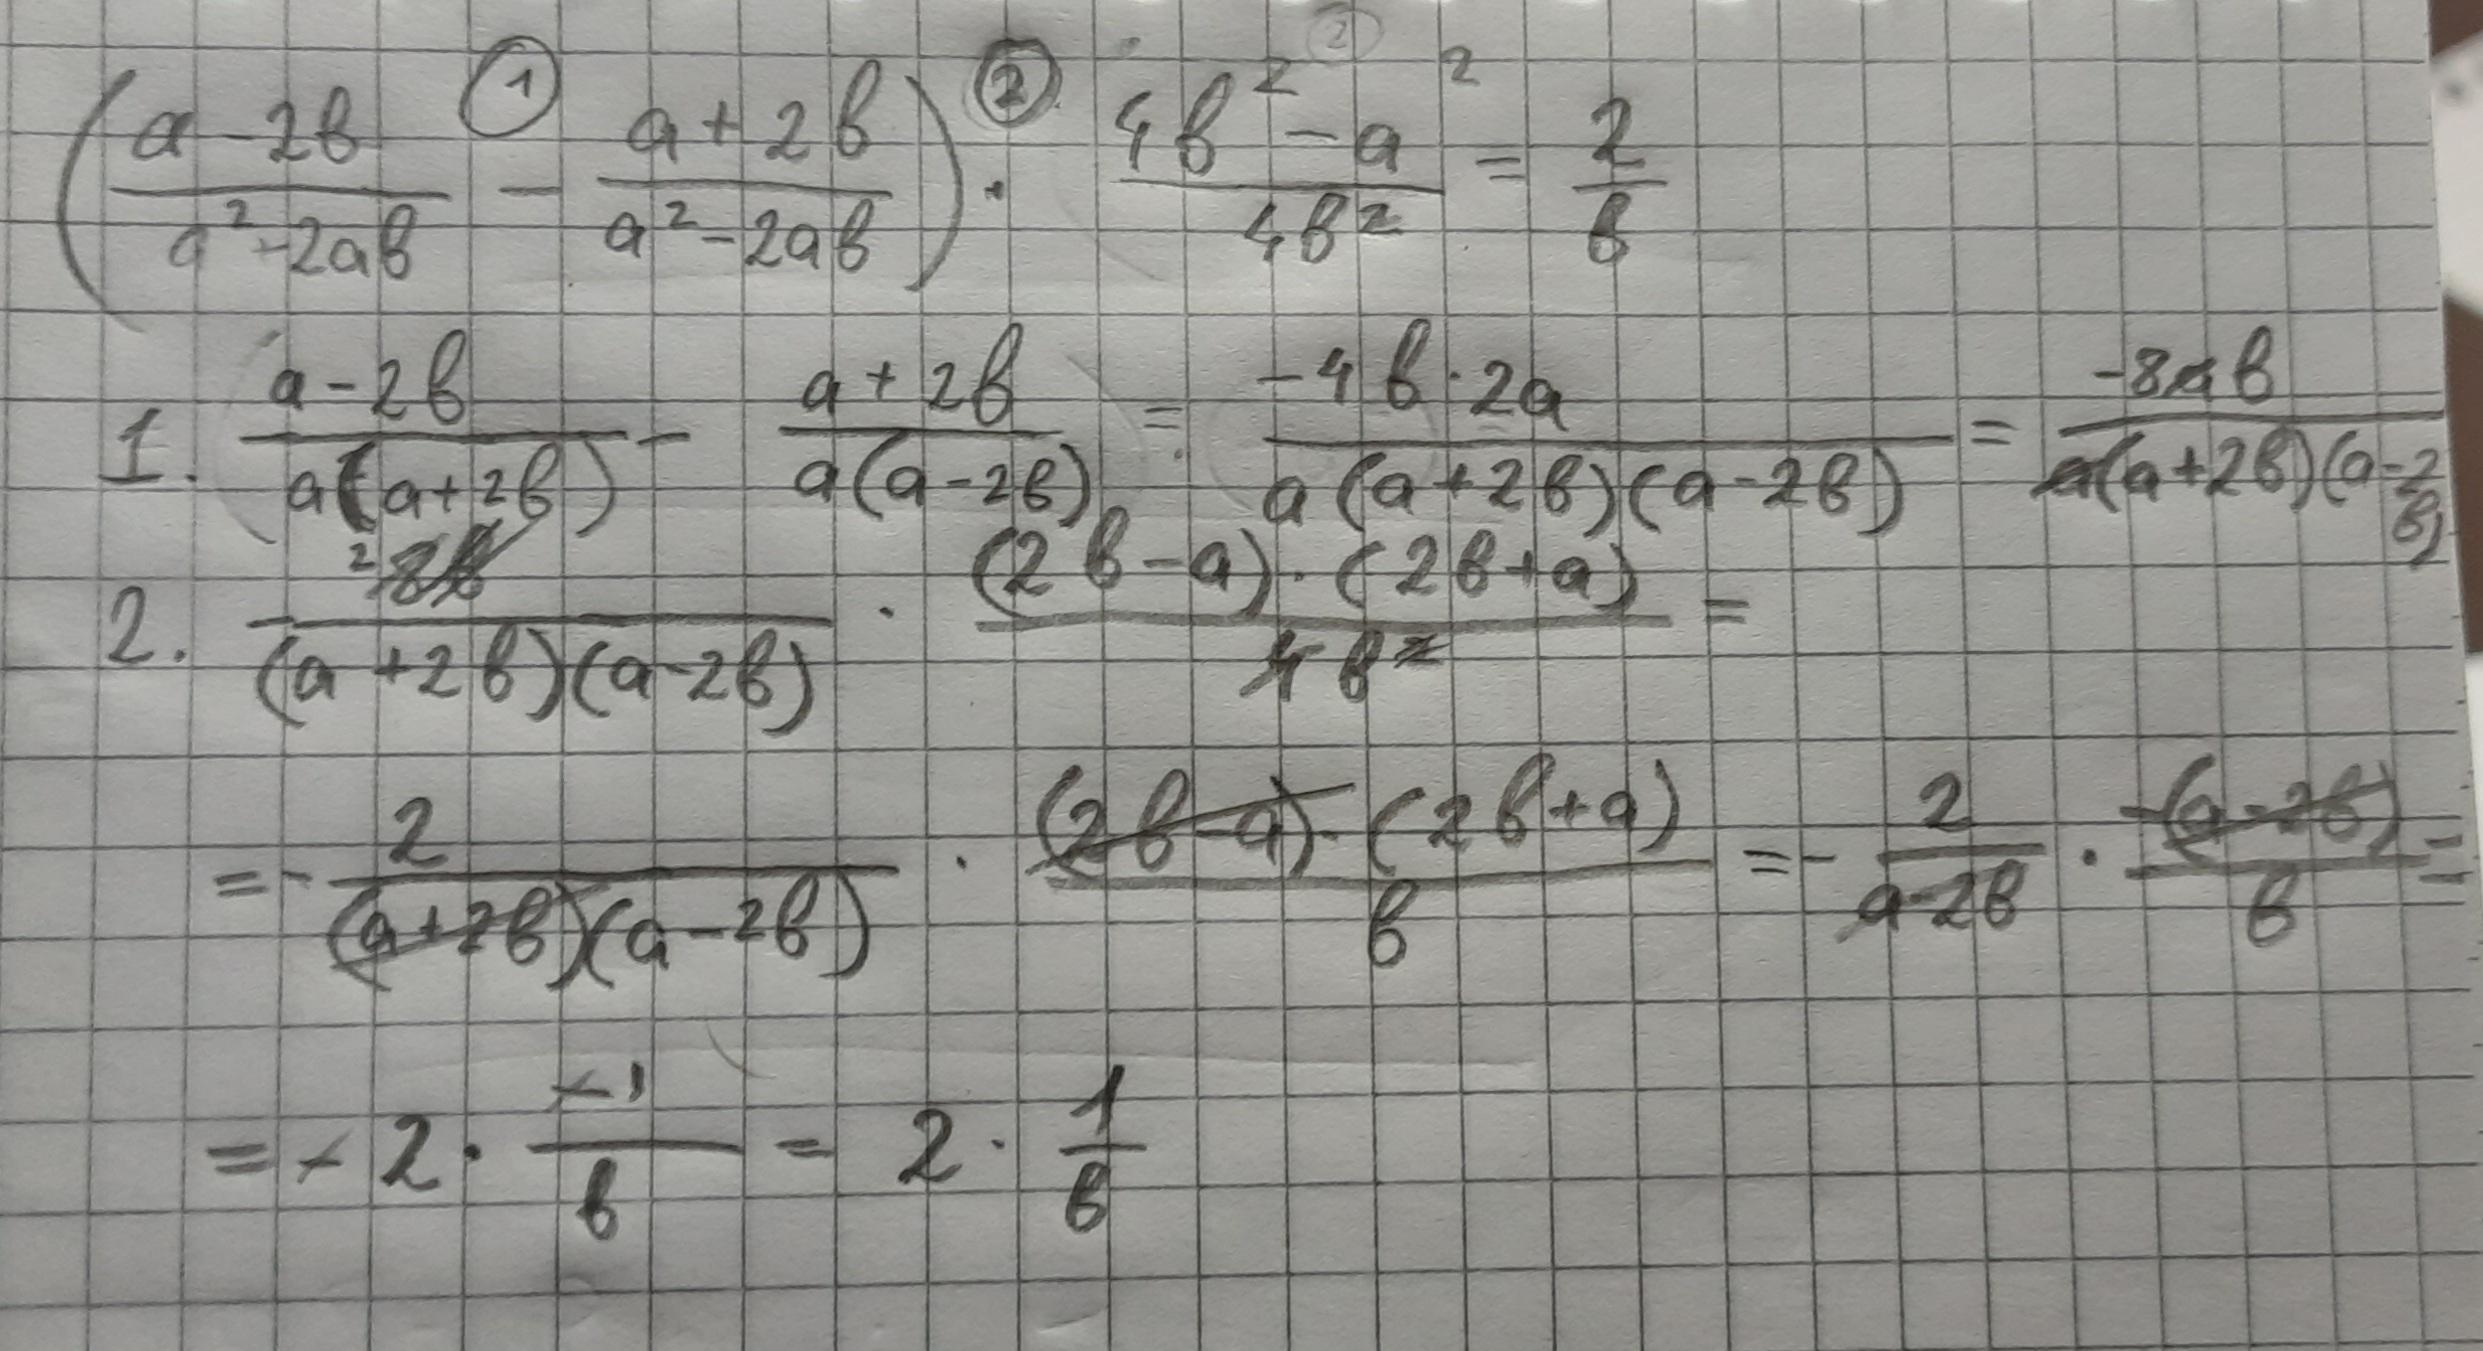 (a - 2b / a² + 2ab ① − a + 2b / a² − 2ab) ② · 4b² − a² / 4b² = 2 / b
1. a − 2b / a(a + 2b) − a + 2b / a(a − 2b) = −4b · 2a / a(a + 2b)(a − 2b) = −8ab / a(a + 2b)(a − 2b)
2. − ² 8b / (a + 2b)(a − 2b) · (2b − a) · (2b + a) / 4b² =
= − 2 / (a + 2b)(a − 2b) · (2b − a) · (2b + a) / b = − 2 / a − 2b · −(a − 2b) / b =
= − 2 · −1 / b = 2 · 1 / b